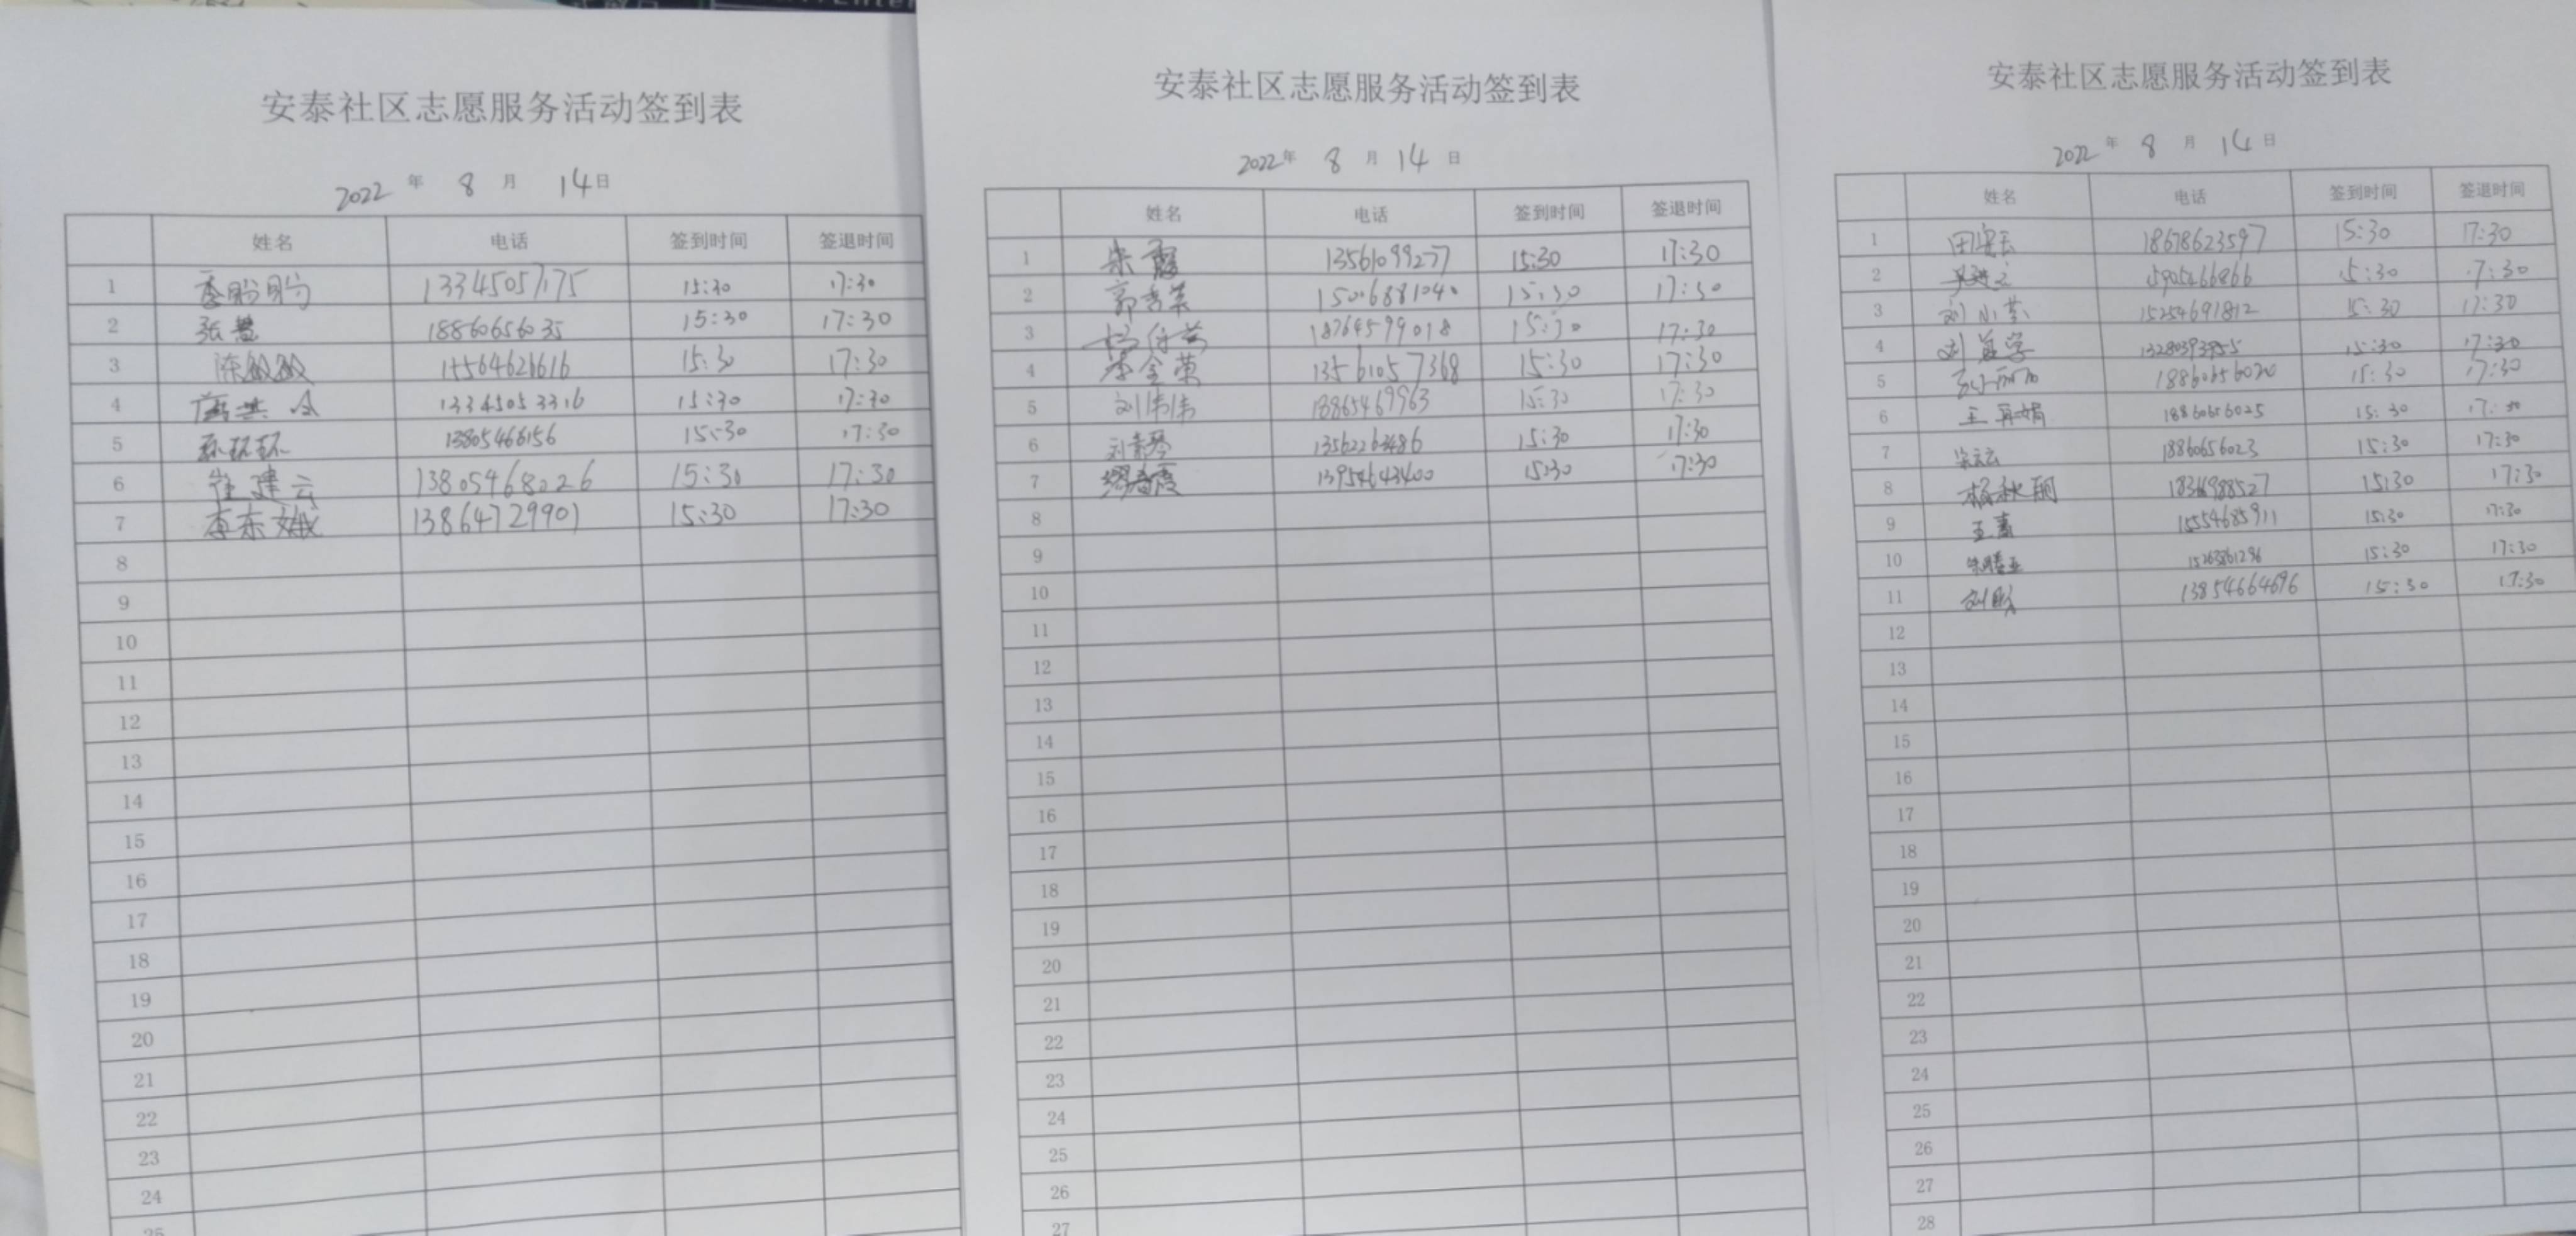 安泰社区志愿服务活动签到表
2022年 8月 14日
姓名 电话 签到时间 签退时间
1 13345057175 15:30 17:30
2 张慧 18860656035 15:30 17:30
3 陈敏敏 15564621616 15:30 17:30
4 13345053316 15:30 17:30
5 环环 13805466156 15:30 17:30
6 崔建云 13805468026 15:30 17:30
7 李东娥 13864729901 15:30 17:30
8
9
10
11
12
13
14
15
16
17
18
19
20
21
22
23
24
25
安泰社区志愿服务活动签到表
2022年 8月 14日
姓名 电话 签到时间 签退时间
1 朱霞 13561099277 15:30 17:30
2 郭秀英 15006881040 15:30 17:30
3 18764599018 15:30 17:30
4 李金荣 13561057368 15:30 17:30
5 刘伟伟 18865469963 15:30 17:30
6 刘素琴 13562263486 15:30 17:30
7 13954643400 15:30 17:30
8
9
10
11
12
13
14
15
16
17
18
19
20
21
22
23
24
25
26
27
安泰社区志愿服务活动签到表
2022年 8月 14日
姓名 电话 签到时间 签退时间
1 18678623597 15:30 17:30
2 15905466866 15:30 17:30
3 刘小芳 15254691812 15:30 17:30
4 刘 15:30 17:30
5 15:30 17:30
6 王 娟 18860656025 15:30 17:30
7 宋云云 18860656023 15:30 17:30
8 杨秋丽 15:30 17:30
9 15554685911 15:30 17:30
10 15:30 17:30
11 13854664696 15:30 17:30
12
13
14
15
16
17
18
19
20
21
22
23
24
25
26
27
28